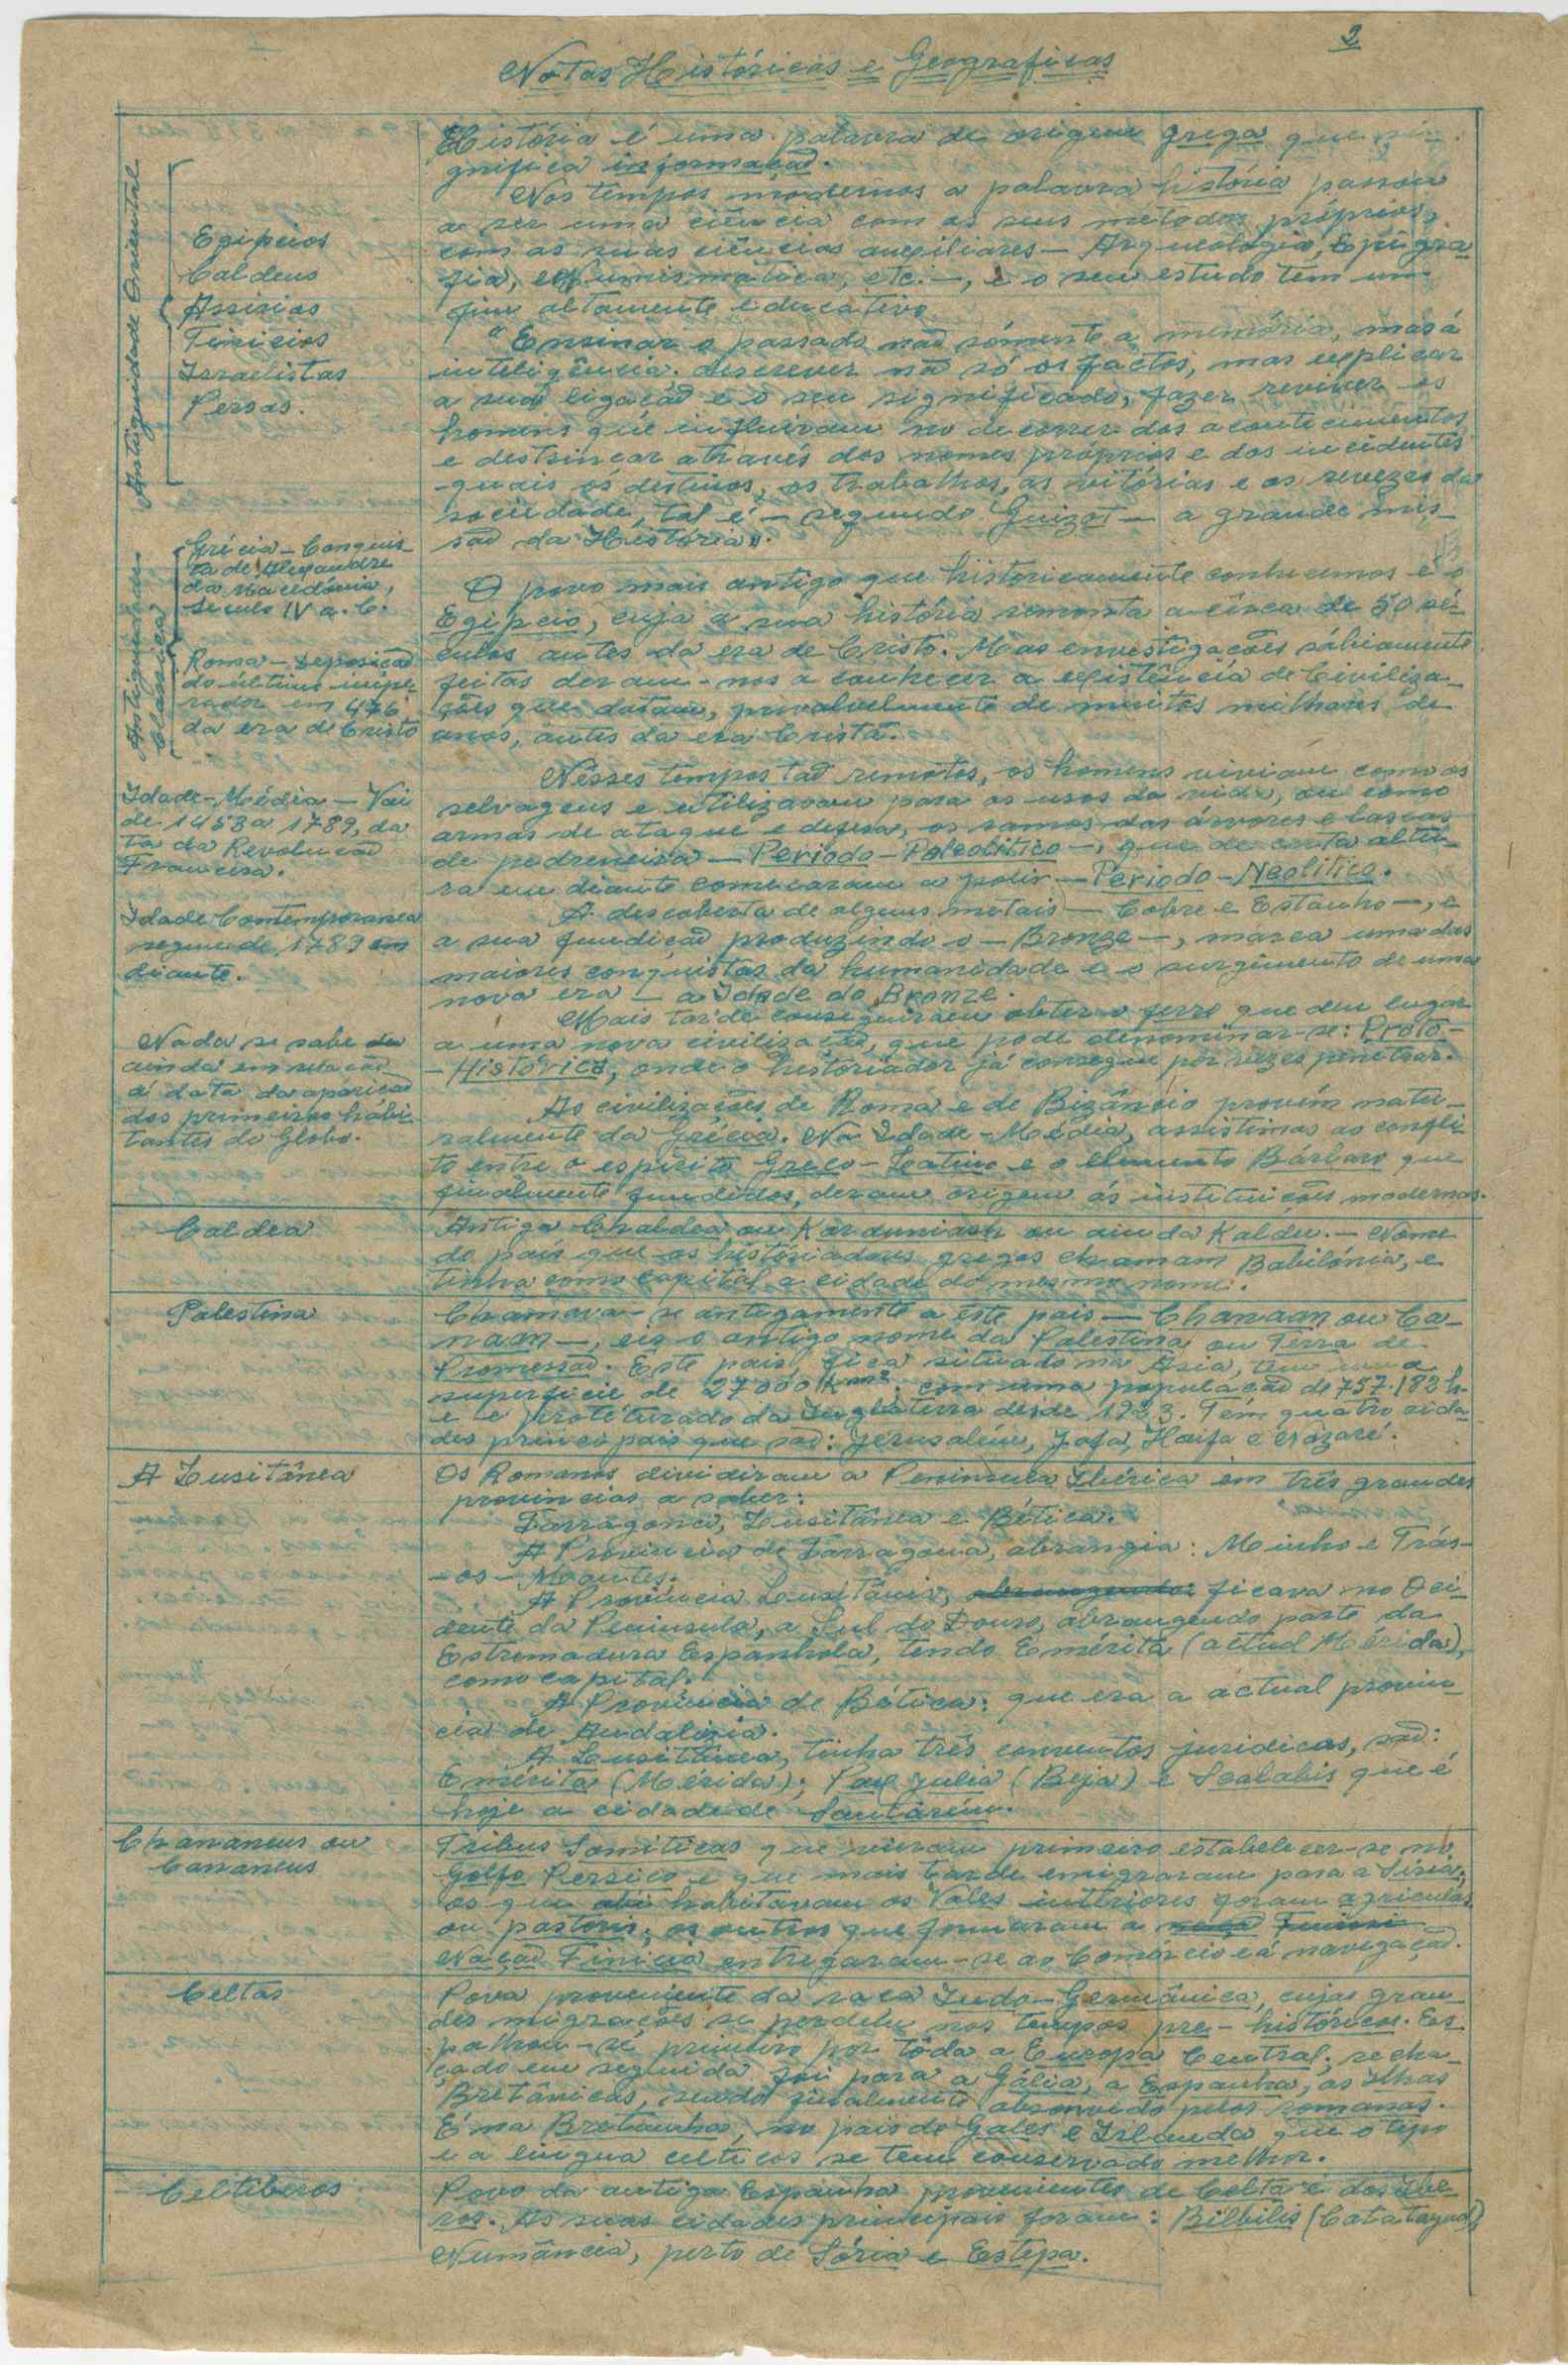 2
Notas Históricas e Geograficas
Antiguidade Oriental
Egipcios
Caldeus
Assirios
Finicios
Israelistas
Persas.
Antiguidade
Classica
Grécia - Conquis-
ta de Alexandre
da Macedónia,
seculo IV a. C.
Roma - Deposição
do último impe-
rador em 476
da era de Cristo
Idade-Média - Vai
de 1453 a 1789, da
ta da Revolução
Francesa.
Idade Contemporanea
segue de 1789 em
diante.
Nada se sabe
ainda em relação
á data da aparição
dos primeiros habi-
tantes do Globo.
História é uma palavra de origem grega que si-
gnifica informação.
Nos tempos modernos a palavra história passou
a ser uma ciência com os seus métodos próprios,
com as suas ciências auxiliares - Arqueologia, Epigra
fia, Numismática, etc. -, e o seu estudo tem um
fim altamente educativo
"Ensinar o passado não sómente a memória, mas á
inteligência. descrever não só os factos, mas explicar
a sua ligação e o seu significado, fazer reviver os
homens que influiram no decorrer dos acontecimentos
e destrinçar através dos nomes próprios e dos incidentes
quais os destinos, os trabalhos, as vitórias e os revezes da
sociedade, tal é - segundo Guizot - a grande mis-
são da História".
O povo mais antigo que historicamente conhecemos é o
Egipcio, cuja a sua história remonta a cêrca de 50 sé-
culos antes da era de Cristo. Mas envestigações sábiamente
feitas deram-nos a conhecer a existência de Civiliza-
ções que datam, provalvelmente de muitos milhares de
anos, antes da era Cristã.
Nêsses tempos tão remotos, os homens viviam como os
selvagens e utilizavam para os usos da vida, ou como
armas de ataque e defesa, os ramos das árvores e lascas
de pedreneira - Periodo-Paleolitico -, que de certa altu-
ra em diante começaram a polir - Periodo-Neolitico.
A descoberta de alguns metais - Cobre e Estanho -, e
a sua fundição produzindo o - Bronze -, marca uma das
maiores conquistas da humanidade e o surgimento de uma
nova era - a Idade do Bronze.
Mais tarde conseguiram obter o ferro que deu lugar
a uma nova civilização, que pode denominar-se: Proto-
-Histórica, onde o historiador já consegue por vezes penetrar.
As civilizações de Roma e de Bizâncio provém natu-
ralmente da Grécia. Na Idade-Média, assistimos ao confli-
to entre o espirito Greco-Latino e o elemento Bárbaro que
finalmente fundidos, deram origem ás instituições modernas.
Caldea
Antiga Chaldea ou Karduniash ou ainda Kaldu. - Nome
do país que os históriadores gregos chamam Babilónia, e
tinha como capital a cidade do mesmo nome.
Palestina
Chamava-se antigamente a êste pais - Chanaan ou Ca-
naan -, eis o antigo nome da Palestina ou Terra de
Promessão. Este pais, fica situado na Ásia, tem uma
superficie de 27000 Km². com uma população de 757.182 h.
e é protéturado da Inglaterra desde 1923. Têm quatro cida-
des principais que são: Jerusalém, Jafa, Haifa e Nazaré.
A Lusitânea
Os Romanos dividiram a Peninsula Ibérica em três grandes
provincias a saber:
Tarragona, Lusitânea e Bética.
A Provincia de Tarragona, abrangia: Minho e Trás-
-os-Montes.
A Provincia Lusitânia, abrangendo: ficava no Oci-
dente da Peninsula, a Sul do Douro, abrangendo parte da
Estremadura Espanhola, tendo Emérita (actual Mérida),
como capital.
A Provincia de Bética: que era a actual provin-
cia de Andaluzia.
A Lusitânea, tinha três conventos juridicos, são:
Emérita (Mérida); Pax Julia (Beja) e Scalabis que é
hoje a cidade de Santarém.
Chananeus ou
Cananeus
Tribus Semiticas que vieram primeiro estabelecer-se no
Golfo Persico e que mais tarde emigraram para a Siria;
os que habitavam os Vales interiores foram agriculas
ou pastoris; os outros que formaram a
Nação Finicia entregaram-se ao Comércio e á navegação.
Celtas
Povo proveniente da raça Indo-Germânica, cujas gran-
des migrações se perdem nos tempos pre-históricos. Es-
palhou-se primeiro por tôda a Europa Central; recha-
çado em seguida foi para a Gália, a Espanha, as Ilhas
Bretânicas, sendo finalmente absorvido pelos romanos.
É na Bretanha, no pais de Gales e Irlanda que o tipo
e a lingua celticos se tem conservado melhor.
Celtiberos
Povo da antiga Espanha provenientes de Celta e dos Ibe-
ros. As suas cidades principais foram: Bilbilis (Catatayud),
Numância, perto de Sória e Estepa.